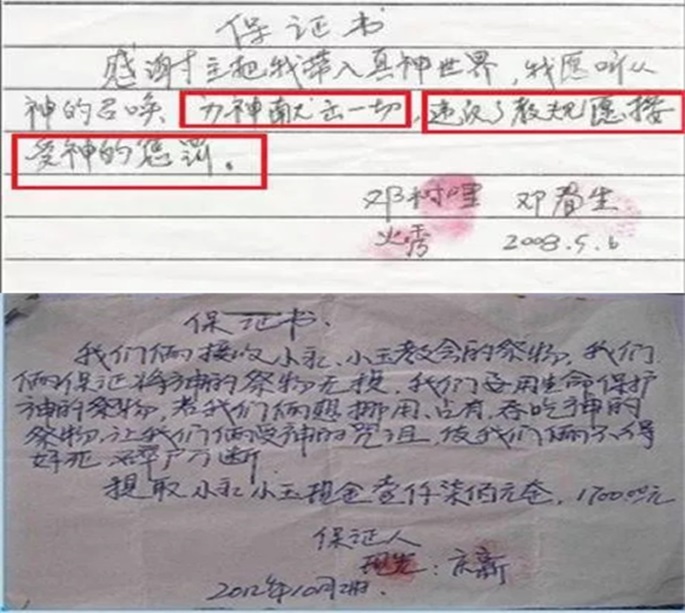 保证书
感谢主把我带入真神世界,我愿听从
神的召唤 为神献出一切,违反了教规愿接
受神的惩罚。
邓树 邓春生
火秀 2008.5.6
保证书.
我们俩接收小永、小玉教会的祭物,我们
俩保证将神的祭物无损,我们要用生命保护
神的祭物,若我们俩想挪用、占有、吞吃神的
祭物,让我们俩受神的咒诅,使我们俩不得
好死
提取小永小玉现金壹仟柒佰元全,1700.00元
保证人
庆新
2012年10月2日